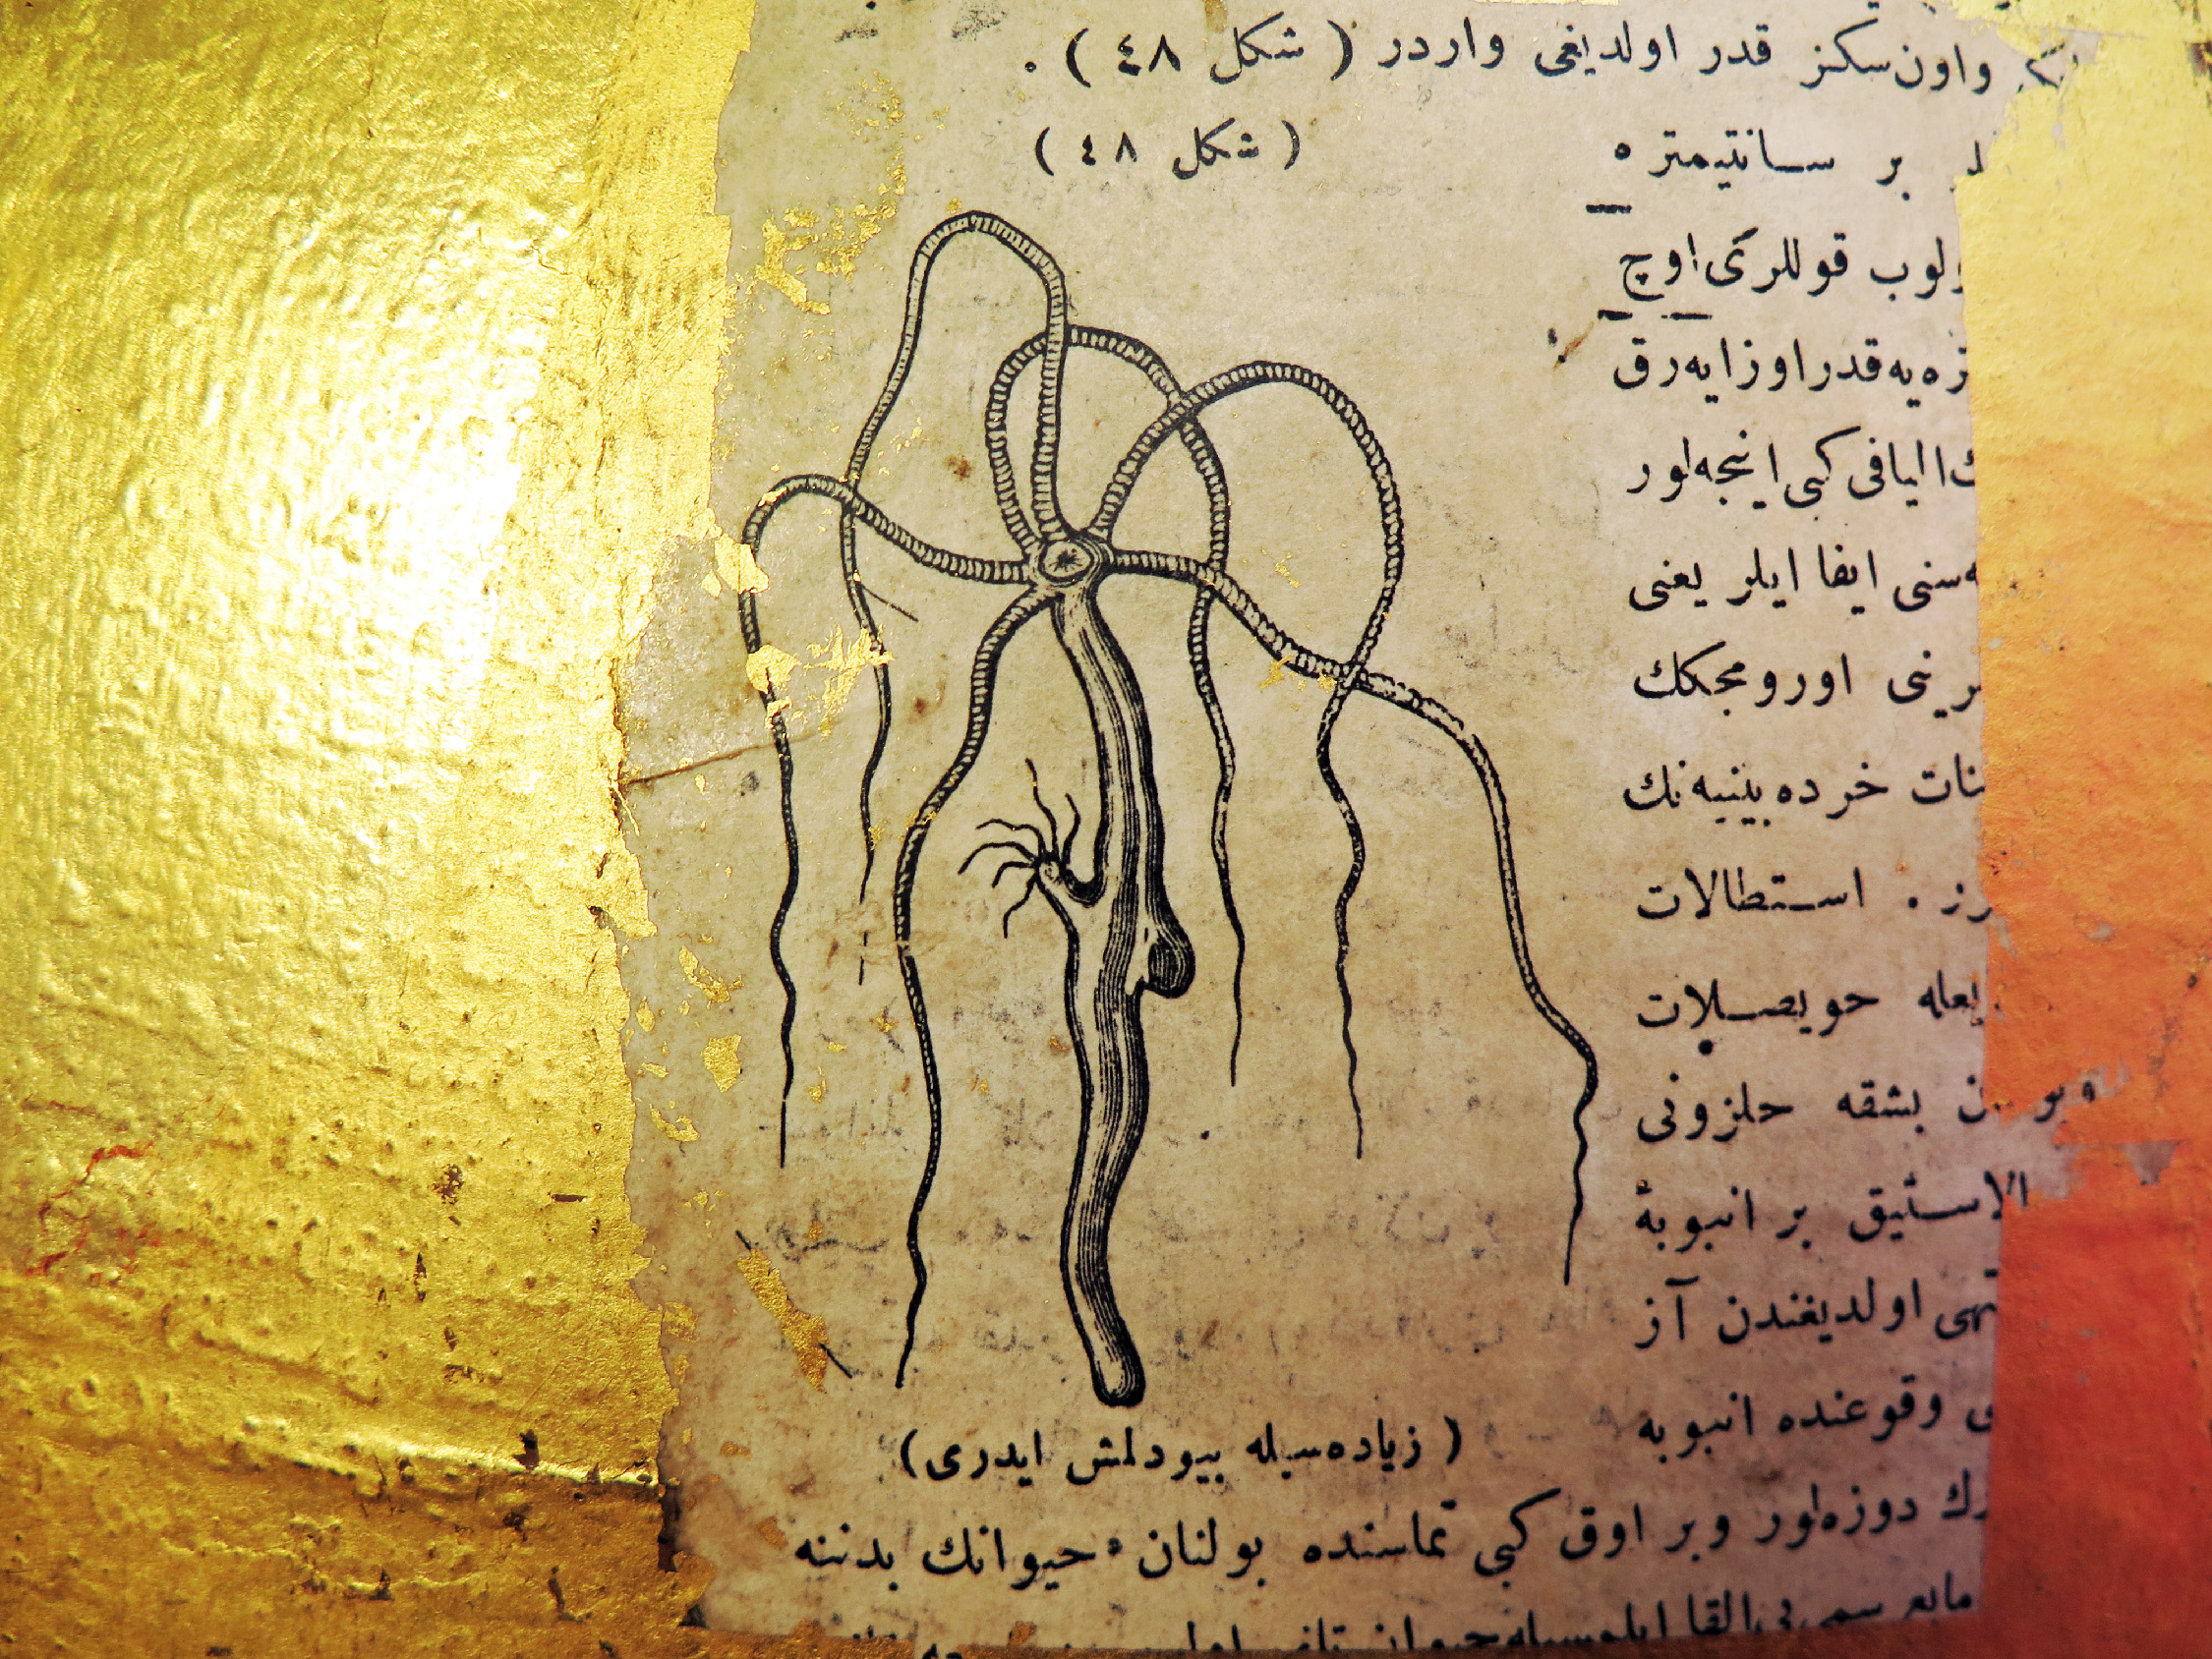 واون‌سکز قدر اولدیغی واردر ( شکل ٤٨ ) .
( شکل ٤٨ )
بر سانتیمتره
قوللری اوچ
یه‌قدر اوزایه‌رق
الیافی کبی اینجه‌لور
ایفا ایلر یعنی
اورومجکك
خرده‌بینیه‌نك
. استطالات
حویصلات
بشقه حلزونی
الاستیق بر انبوبهٔ
اولدیغندن آز
وقوعنده انبوبه
( زیاده‌سیله بیودلمش ایدری )
دوزه‌لور وبر اوق کبی تماسنده بولنان حیوانك بدننه
مایع سمی